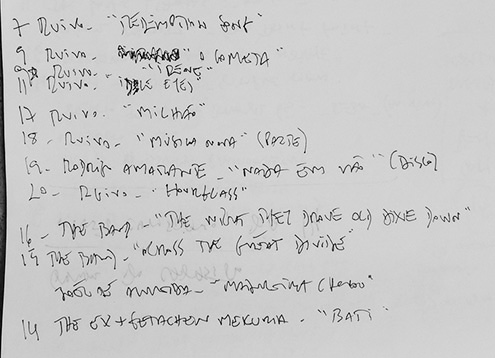 7 RUIVO - "REDEMPTION SONG"
9 RUIVO - "O COMETA"
RUIVO - "IRENE"
11 RUIVO - "EYES"
17 RUIVO - "MILHÃO"
18 - RUIVO - "MÚSICA NOVA" (PARTE)
19 - RODRIGO AMARANTE - "NADA EM VÃO" (DISCO)
20 - RUIVO - "HOURGLASS"
16 - THE BAND - "THE NIGHT THEY DROVE OLD DIXIE DOWN"
15 THE BAND - "ACROSS THE GREAT DIVIDE"
14 THE EX + GETACHEW MEKURIA - "BATI"